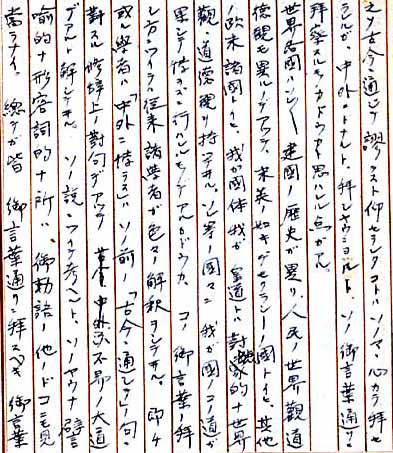 之ヲ古今ニ通ジテ謬ラスト仰セラレタコトハソノマヽ心カラ拝セ
ラレルガ、中外ニトナルト、拝シヤウニヨルト、ソノ御言葉通リニ
拝察スルモノカドウカト思ハレル点ガアル。
世界各国ハソレ〱建国ノ歴史ガ異リ、人民ノ世界観道
徳観モ異ルノデアツテ、米英ノ如キデモクラシーノ国トイヒ、其他
ノ欧米諸国トイヒ、我ガ国体我ガ皇道トハ対蹠的ナ世界
観・道徳観ヲ持ツテヰル。ソレ等ノ国々ニ我ガ国ノコノ道ガ
果シテ悖ラスニ行ハレルモノデアルカドウカ、コノ御言葉ノ拝
シ方ニツイテハ従来諸学者ガ色々ノ解釈ヲシテヰル。即チ
或ル学者ハ「中外ニ悖ラス」ハソノ前ノ「古今ニ通シテ」ノ句ニ
対スル修辞上ノ対句デアツテ 古今中外 不易ノ大道
デアルト解シテヰル。ソノ説ニツイテ考ヘルト、ソノヤウナ譬
喩的ナ形容詞的ナ所ハ、御勅語ノ他ノドコニモ見
当ラナイ。総テガ皆 御言葉通リニ拝スベキ御言葉